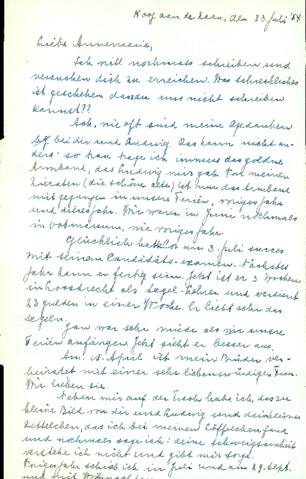 Koog aan de Zaan, den 13 Juli '54
Liebe Annemarie,
Ich will nochmals schreiben und
versuchen dich zu erreichen. Was schreckliches
ist geschehen dass du uns nicht schreiben
kannst??
Ach, wie oft sind meine Gedanken
bei dir und Ludwig. Das kann nicht an-
ders: so trage ich immer das goldne
Armband, das Ludwig mir gab. Von meinen
(die schöne
mitgegangen in unsere Ferien, voriges Jahr
und dieses Jahr. Wir waren im Juni nochmals
in wie voriges Jahr.
Glücklich hat Cor am 3. Juli succes
mit seinem Candidats-examen. Nächstes
Jahr kann er fertig sein. Jetzt ist er 3 Wochen
in als Segel-Lehrer und verdient
23 gulden in einer Woche. Er liebt sehr das
segeln.
Jan war sehr müde als wir unsre
Ferien anfingen. Jetzt sieht er besser aus.
Am April ist mein Bruder ver-
heiratet mit einer sehr liebenswürdigen Frau.
Wir lieben sie.
Neben mir auf der Tisch habe ich das
kleine Bild von dir und Ludwig und
das ich bei meinem Löffelchen fand
und nochmals sage ich: deine Schweigsamkeit
verstehe ich nicht und gibt mir Sorge.
Voriges Jahr schrieb ich in Juli und am 29. Sept.
und mit